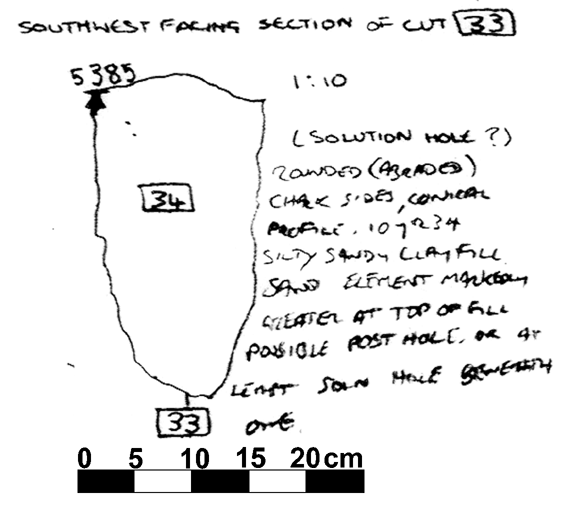 SOUTHWEST FACING SECTION OF CUT 33
5385
1:10
(SOLUTION HOLE ?)
ROUNDED (ABRADED)
CHALK SIDES, CONICAL
34
PROFILE. 10YR34
SILTY SANDY CLAY FILL
SAND ELEMENT MARKEDLY
GREATER AT TOP OF FILL
POSSIBLE POST HOLE, OR AT
LEAST SOLN HOLE BENEATH
33
ONE.
0 5 10 15 20cm